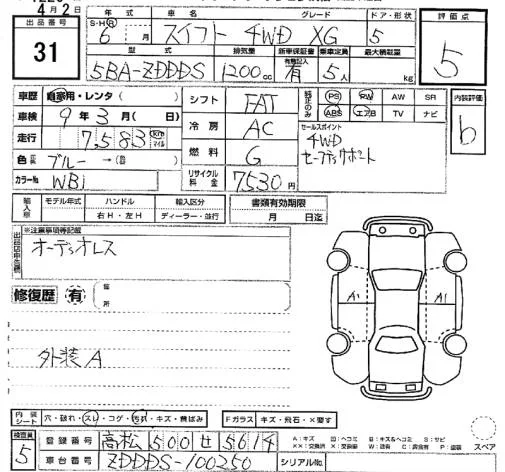 4月2日
出品番号
31
年式 車名 グレード ドア・形状
S・H・R 6 月 スイフト 4WD XG 5
型式 排気量 新車保証書 乗車定員 最大積載量
有無記入
5BA-ZDDDS 1200cc 有 5人 kg
評価点
5
車歴 自家用・レンタ( )
車検 9年3月( 日)
走行 7,583 km マイル
色 ブルー→( )
カラーNo. WBJ
シフト FAT
冷房 AC
燃料 G
リサイクル料金 7530円
純正のみ PS PW AW SR
ABS エアB TV ナビ
セールスポイント
4WD
セーフティサポート
内装評価
b
輸入車 モデル年式 ハンドル 輸入区分 書類有効期限
右H・左H ディーラー・並行 月 日迄
※注意事項等記載
オーディオレス
修復歴 有
箇所
外装A
A1 A1
内装シート 穴・破れ・スレ・コゲ・汚れ・キズ・饅ばみ
Fガラス キズ・飛石・×要す
検査員 5
登録番号 高松 500 せ 5614
車台番号 ZDDDS-100250
シリアルNo.
A:キズ U:ヘコミ B:キズ&ヘコミ S:サビ
スペア